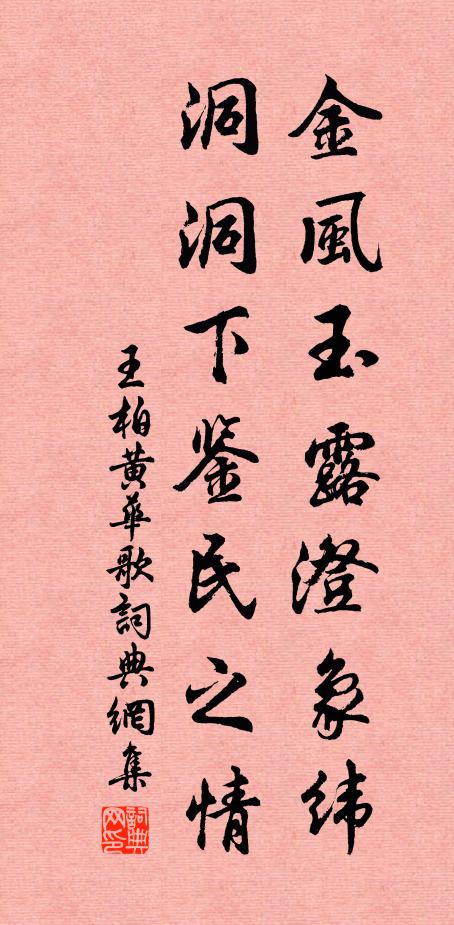 金風玉露澄象緯
洞洞下鉴民之情
王柏黄華歌詞典網集
詞典网印